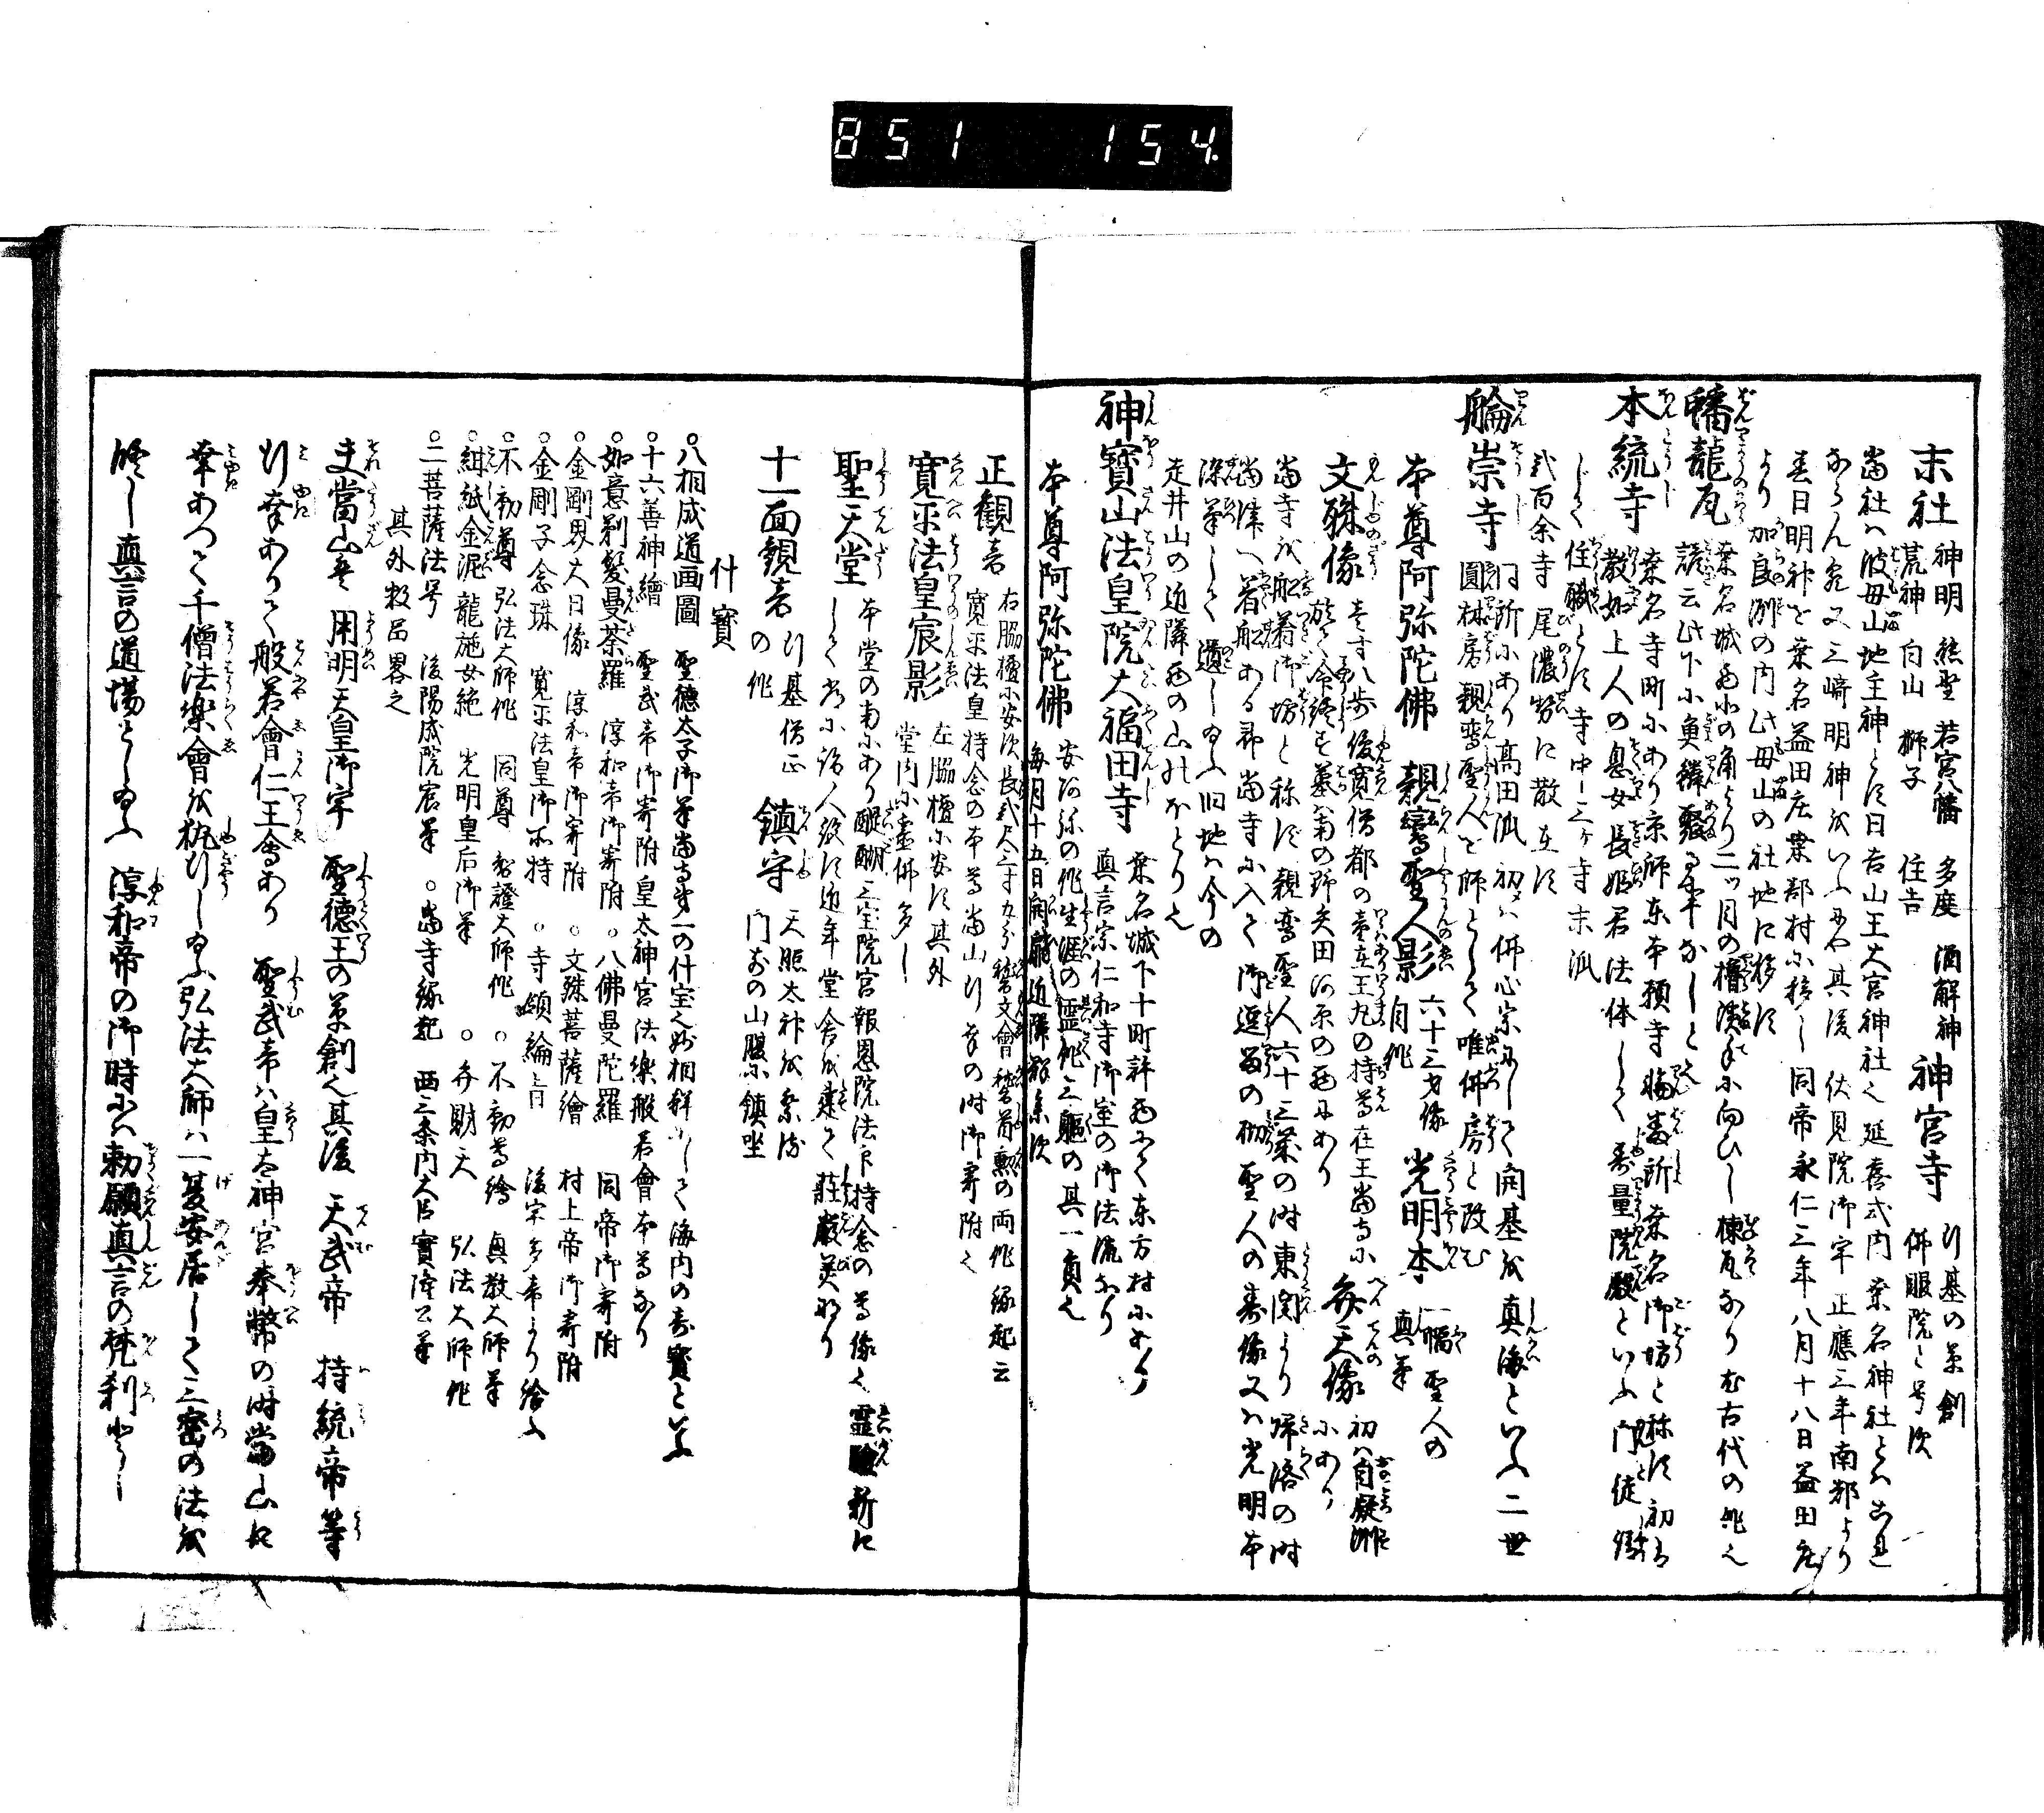 851 154.
末社 神明 熊野 若宮八幡 多度 酒解神
荒神 白山 獅子 住吉
神宮寺 行基の草創
佛眼院と号次
當社ハ波母山地主神とす日吉山王大宮神社也 延喜式内桑名神社とハこれ
ならん宛又三﨑明神をいふにや其後 伏見院御宇正應三年南都より
春日明神を桑名益田庄桑部村に移し同帝永仁三年八月十八日益田庄
より加良洲の内此母山の社地に移す
幡龍瓦 桑名城西北の角より二ツ目の櫓濱手に向ひし棟瓦なり むか古代の作也
諺云此下に魚
本統寺 桑名寺町にあり京師東本願寺 所桑名御坊と称す初ハ
教如上人の息女長姫君法体しく寿量院殿といふ門徒
じく住職とす寺中三ヶ寺末派
弐百余寺尾濃勢に散在す
崇寺 同所にあり高田派初ハ佛心宗にして開基を真海といふ二世
圓林房親鸞聖人を師としく唯佛房と改む
本尊阿弥陀佛 親鸞聖人影 六十三才像
自作
光明本 一幅聖人の
真筆
文殊像 長サ八歩俊寛僧都の童在王丸の持尊在王當寺に
墓南の野矢田河原の西にあり
弁天像 初ハ自凝洲
にあり
當寺を船着御坊と称ず親鸞聖人六十三歳の時東関より帰洛の時
當津へ着船ある即當寺に入て御逗留の砌聖人の寿像又ハ光明本
染筆しく遺し給ふ旧地ハ今の
走井山の近隣西の山のほとり也
神寳山法皇院大福田寺 桑名城下十町許西にて東方村にあり
真言宗仁和寺御室の御法流なり
本尊阿弥陀佛 安阿弥の作生涯の霊作三躯の其一員也
毎月十五日開扉近隣群参次
正觀音 右脇檀に安次長弐尺三寸九分
寛平法皇持念の本尊當山行幸の時御寄附也
寛平法皇宸影 左脇檀に安す其外
堂内に霊佛多し
聖天堂 本堂の南にあり醍醐三宝院宮報恩院法印持念の尊像也霊驗新に
しく常に詣人絶す近年堂舎を建て莊嚴美なり
十一面觀音 行基僧正
の作
鎮守 天照太神を祭る
門前の山腰に鎮坐
什寳
○八相成道画圖 聖徳太子御筆當寺第一の什宝也妙相鮮にして海内の寿寳といふ
○十六善神繪 聖武帝御寄附皇太神宮法樂般若會本尊なり
○如意剃髮曼荼羅 淳和帝御寄附 ○八佛曼陀羅 同帝御寄附
○金剛界大日像 淳和帝御寄附 ○文殊菩薩繪 村上帝御寄附
○金剛子念珠 寛平法皇御所持 ○寺頟綸旨 後宇多帝より給ふ
○不動尊 弘法大師作 同尊 智證大師作 ○不動尊繪 興教大師筆
○紺紙金泥龍施女絶 光明皇后御筆 ○弁財天 弘法大師作
○二菩薩法号 後陽成院宸筆 ○當寺縁起 西三条内大臣實隆公筆
其外数品畧之
夫當山ハ 用明天皇御宇 聖徳王の草創也其後 天武帝 持統帝等
行幸ありて般若會仁王會あり 聖武帝ハ皇太神宮奉幣の時當山に
幸あつて千僧法樂會を執行し給ふ弘法大師ハ一夏安居して三密の法を
修し真言の道場とし給ふ 淳和帝の御時にハ勅願真言の梵刹とし